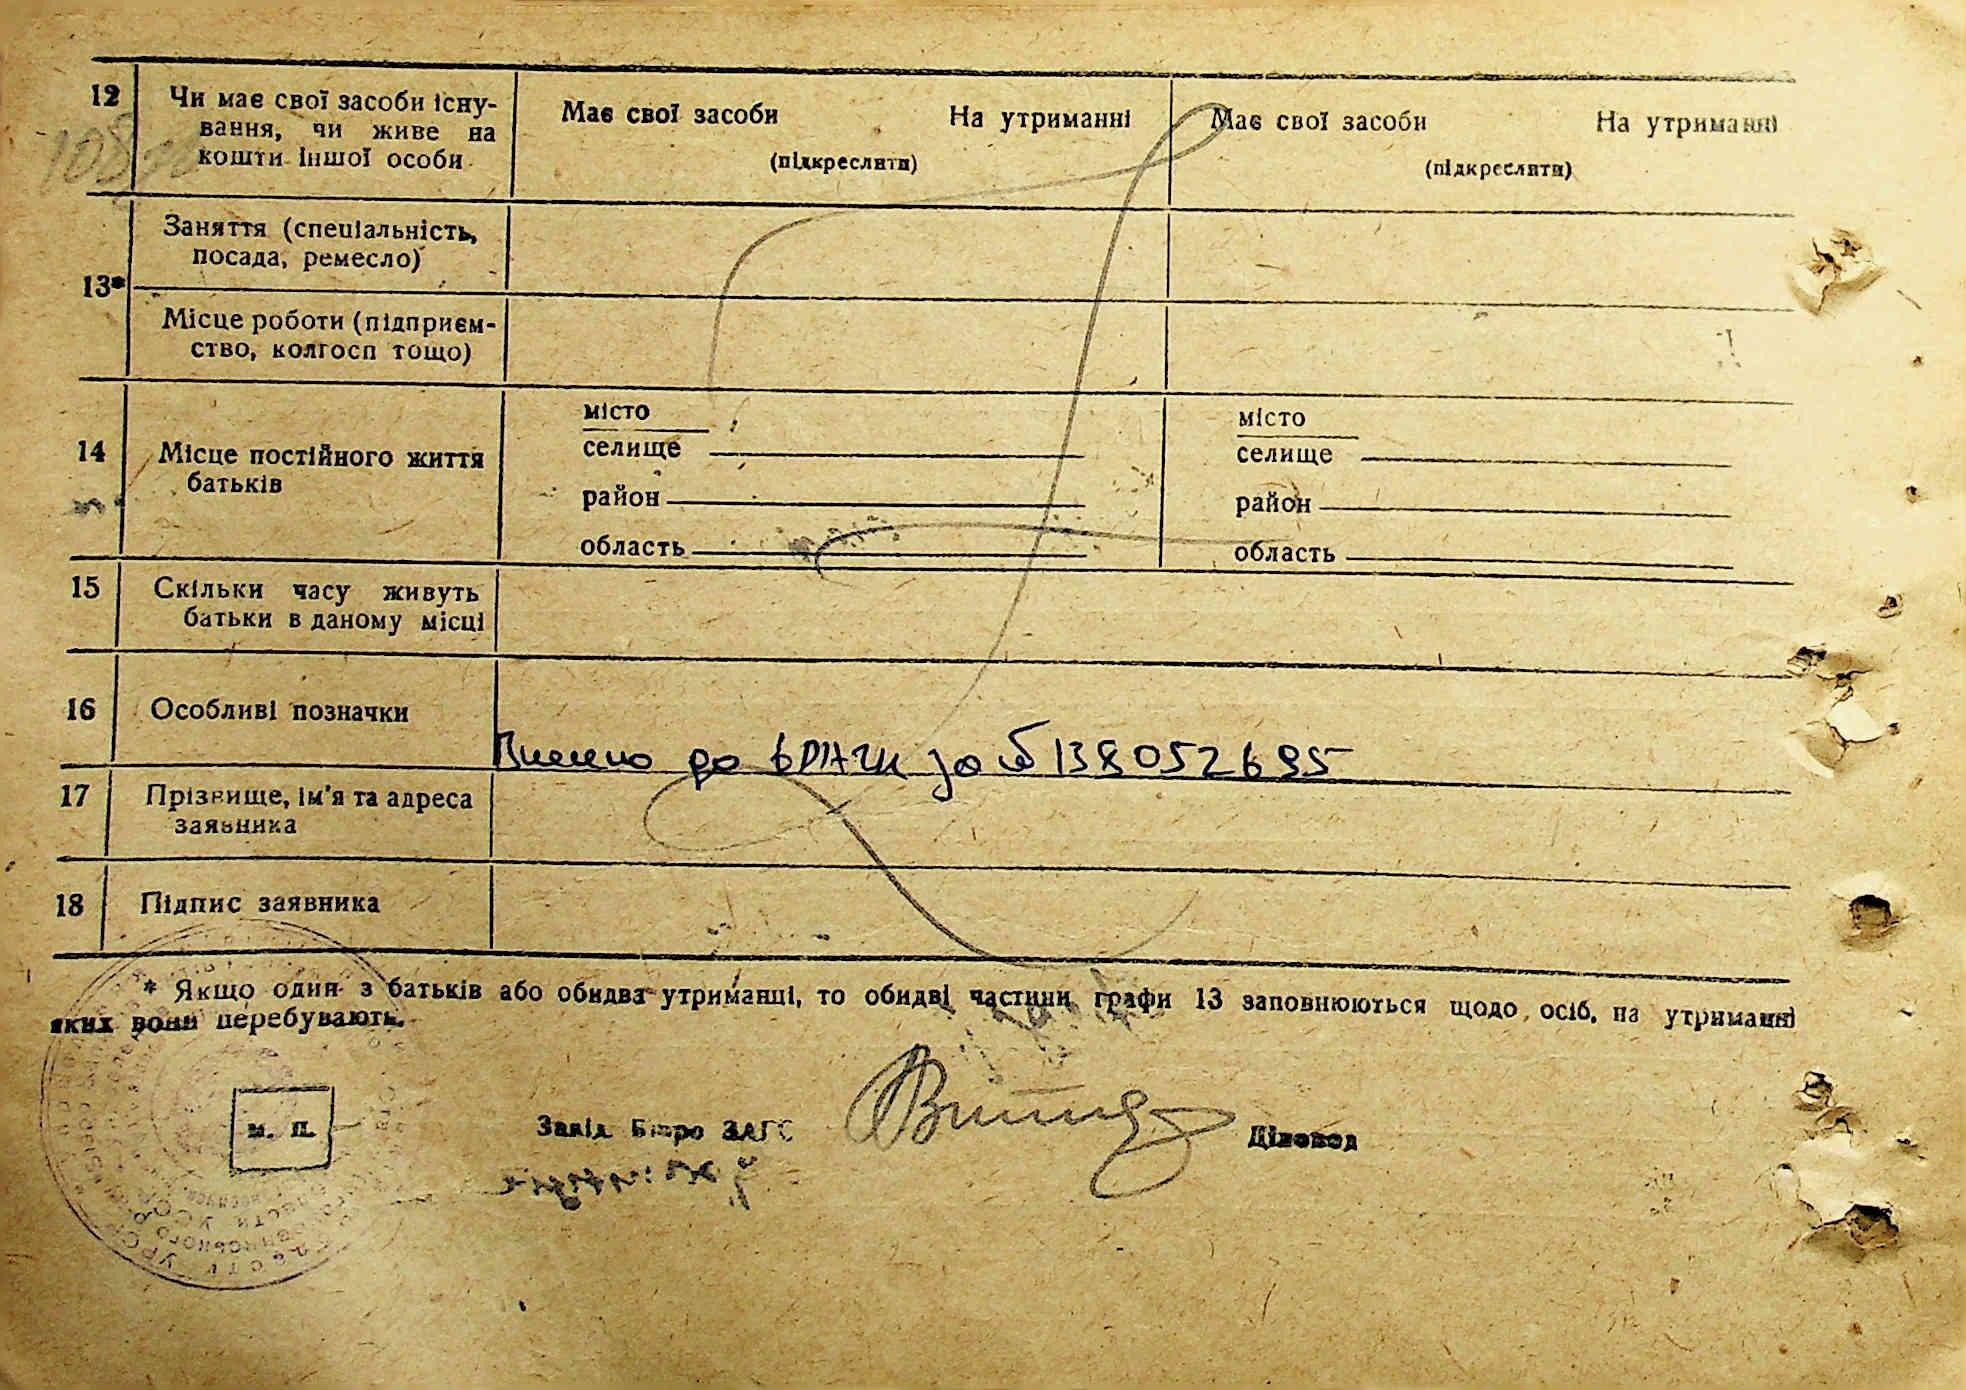 12 Чи має свої засоби існу-
вання, чи живе на
кошти іншої особи
Має свої засоби На утриманні
(підкреслити)
Має свої засоби На утриманні
(підкреслити)
13* Заняття (спеціальність,
посада, ремесло)
Місце роботи (підприєм-
ство, колгосп тощо)
14 Місце постійного життя
батьків
місто
селище
район
область
місто
селище
район
область
15 Скільки часу живуть
батьки в даному місці
16 Особливі позначки
до за № 138052695
17 Прізвище, ім'я та адреса
заявника
18 Підпис заявника
* Якщо один з батьків або обидва утриманці, то обидві частини графи 13 заповнюються щодо осіб, на утриманні
яких вони перебувають.
м. п.
Завід. Бюро ЗАГС Діловод